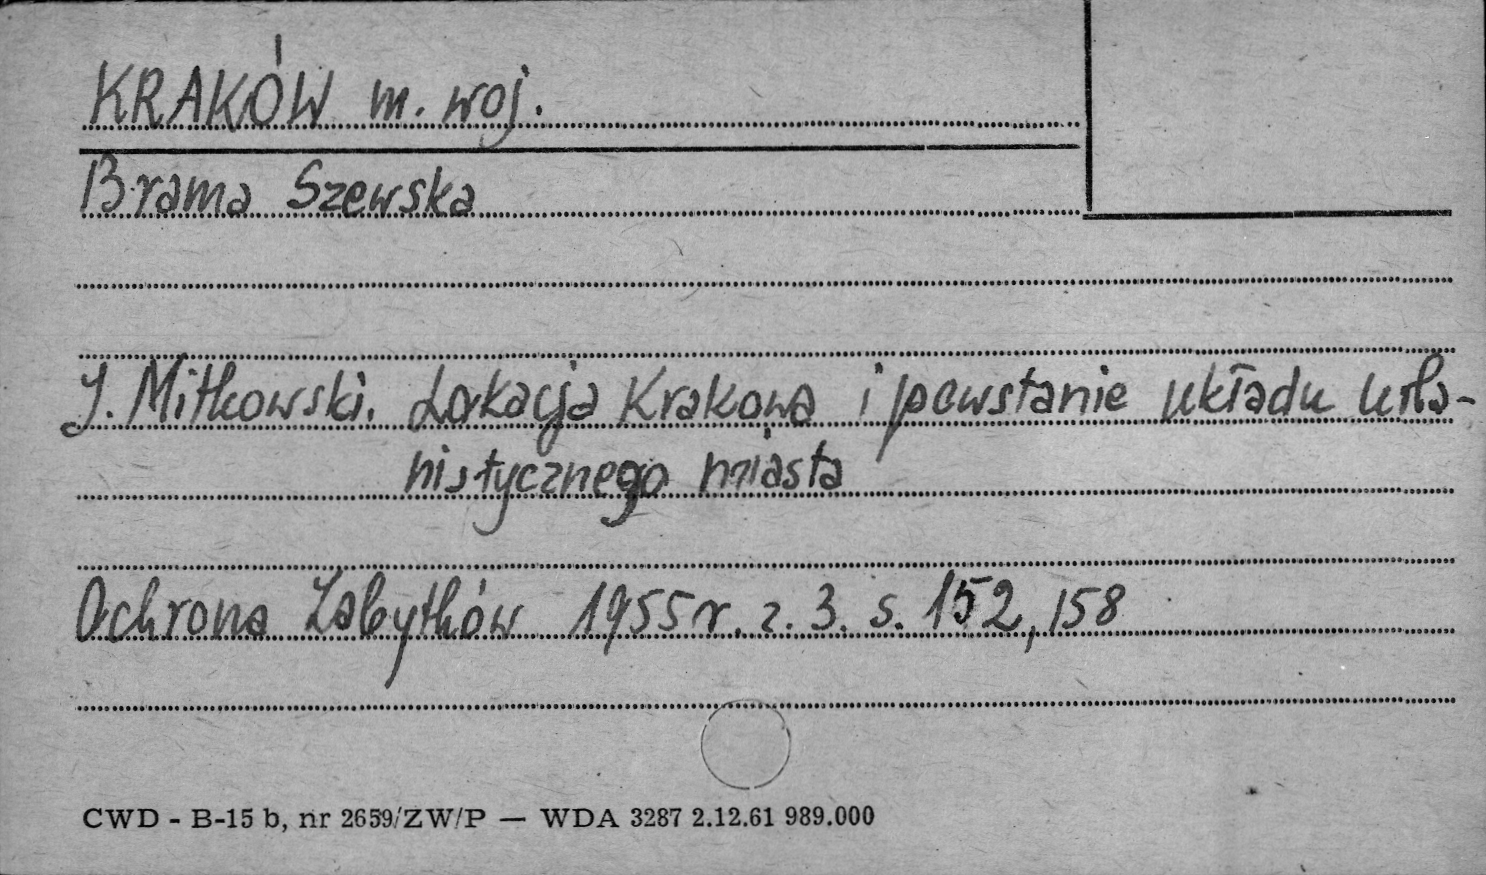 KRAKÓW m. woj.
Brama Szewska
J. Mitkowski. Lokacja Krakowa i powstanie układu urba-
nistycznego miasta
Ochrona Zabytków 1955 r. z. 3. s. 152, 158
CWD - B-15 b, nr 2659/ZW/P — WDA 3287 2.12.61 989.000